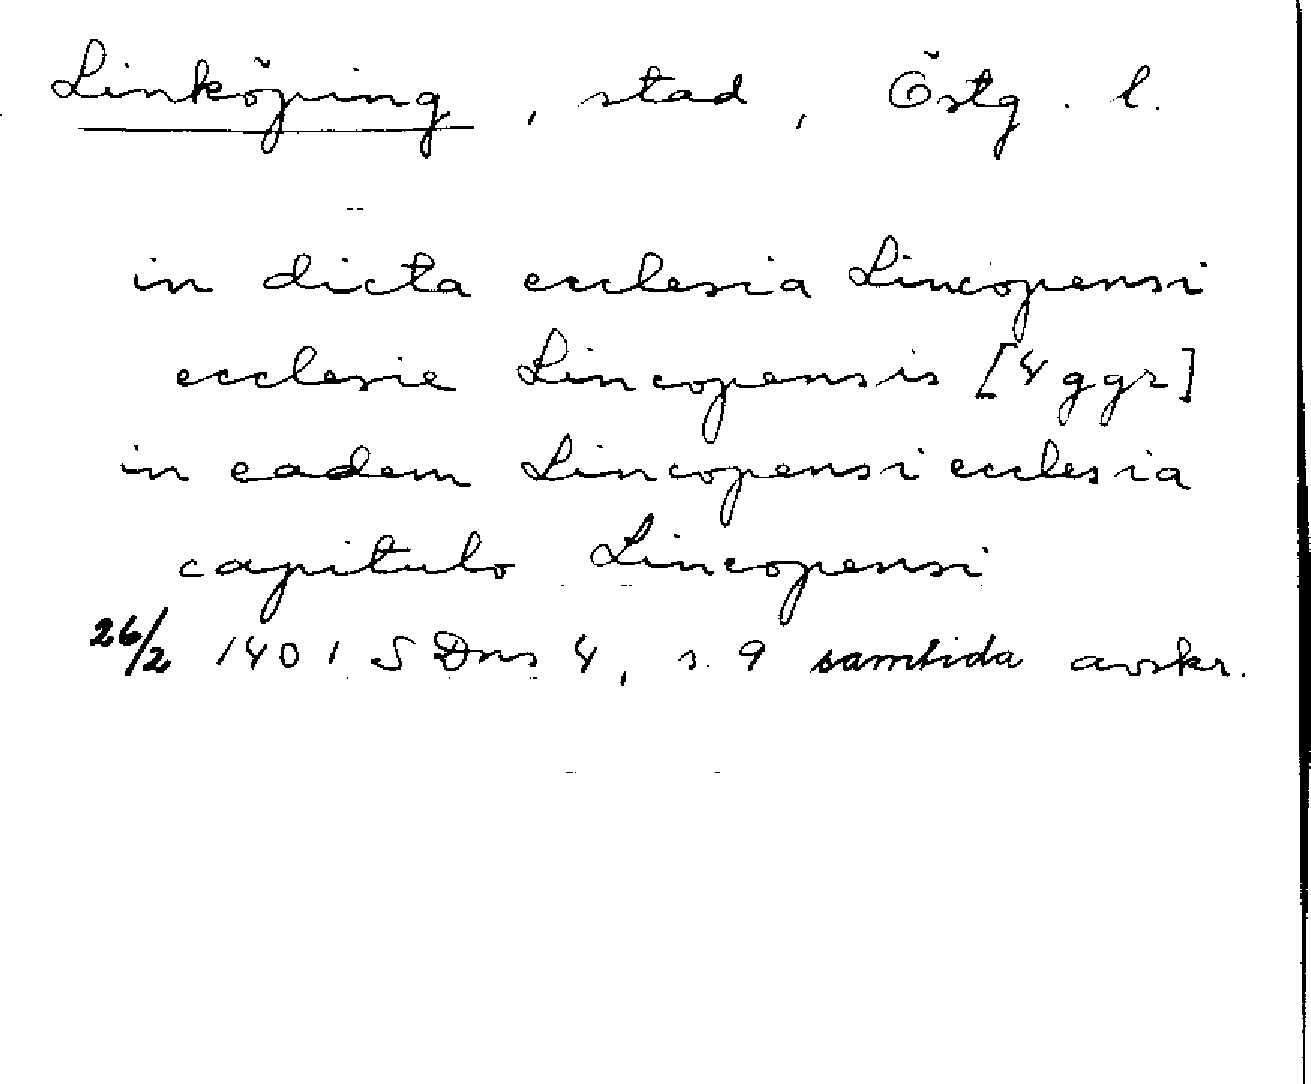 Linköping, stad, Östg. l.
in dicta ecclesia Lincopensi
ecclesie Lincopensis [4 ggr]
in eadem Lincopensi ecclesia
capitulo Lincopensi
26/2 1401 SDns 4, s. 9 samtida avskr.